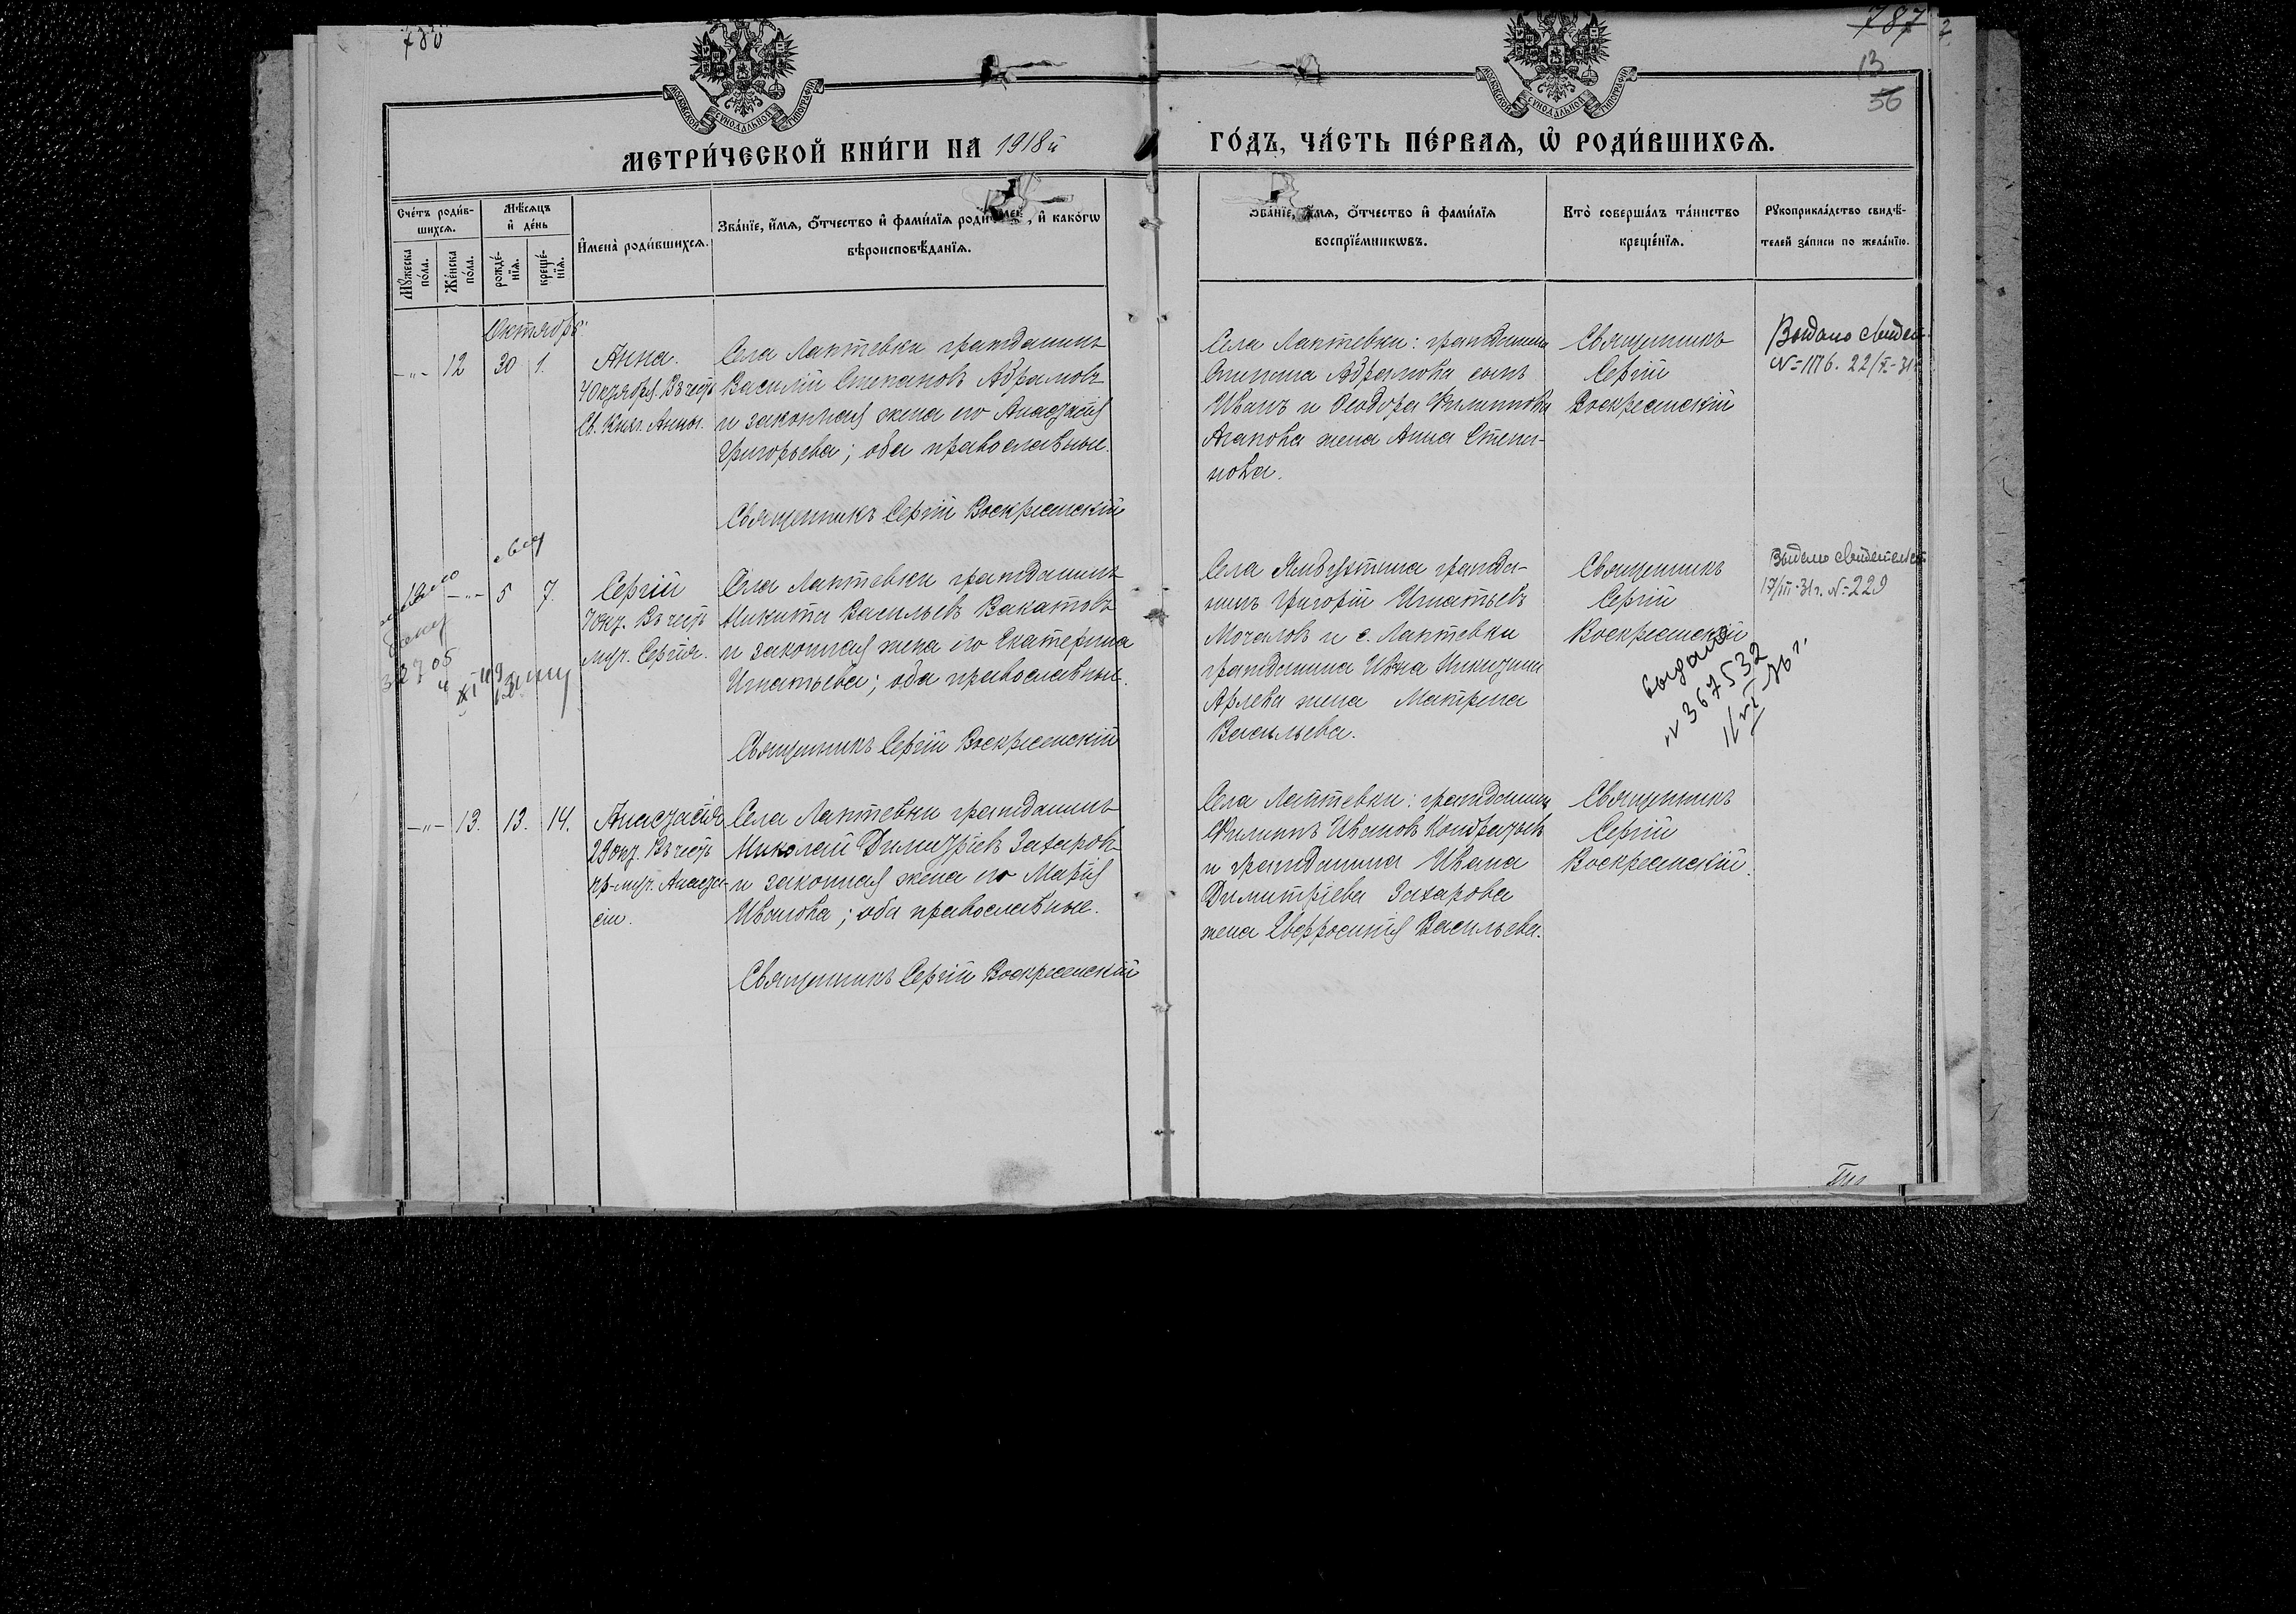 787
13
56
МОСКОВСКОЙ СѴНОДАЛЬНОЙ ТИПОГРАФІИ
МОСКОВСКОЙ СѴНОДАЛЬНОЙ ТИПОГРАФІИ
МЕТРИ́ЧЕСКОЙ КНИ́ГИ НА 1918й
ГО́ДЪ, ЧА́СТЬ ПЕ́РВАѦ, Ѡ҆ РОДИ́ВШИХСѦ.
Сче́тъ роди́в-
шихсѧ.
Мꙋ́жеска по́ла.
Же́нска по́ла.
Мѣ́сѧцъ
и҆ де́нь
рожде́-
нїѧ.
креще́-
нїѧ.
И҆мена̀ роди́вшихсѧ.
Зва́нїе, и҆́мѧ, ѻ҆́тчество и҆ фами́лїѧ роди́телей, и҆ како́гѡ
вѣроисповѣ́данїѧ.
Зва́нїе, и҆́мѧ, ѻ҆́тчество и҆ фами́лїѧ
воспрїе́мникѡвъ.
Кто̀ соверша́лъ та́инство
креще́нїѧ.
Рꙋкоприкла́дство свидѣ́-
телей за́писи по жела́нїю.
Октябрь
-"- 12 30 1.
Анна.
4 Октября. Въ честь
Св. Княг. Анны.
Села Лаптевки гражданинъ
Василій Степановъ Абрамовъ
и законная жена его Анастасія
Григорьева; оба православные.
Священникъ Сергій Воскресенскій
Села Лаптевки: гражданина
Степана Абрамова сынъ
Иванъ и Ѳеодора Филиппова
Агапова жена Анна Степа-
нова.
Священникъ
Сергій
Воскресенскій
Выдано свидет.
№ 1176. 22/VI-31
-"- 5 7.
32705
Сергій
7 окт. Въ честь
муч. Сергія.
Села Лаптевки гражданинъ
Никита Васильевъ Вакатовъ
и законная жена его Екатерина
Игнатьева; оба православные.
Священникъ Сергій Воскресенскій
Села гражда-
нинъ Григорій Игнатьевъ
Мочаловъ и с. Лаптевки
гражданина Ивана Никитина
жена Матрена
Васильева.
Священникъ
Сергій
Воскресенскій
Выдано свидетельст.
17/III-31г. №=229
выдано
№ 367532
-"- 13. 13. 14.
Анастасія
29 окт. Въ честь
пр-муч. Анаста-
сіи.
Села Лаптевки гражданинъ
Николай Димитріевъ Захаровъ
и законная жена его Марія
Иванова; оба православные.
Священникъ Сергій Воскресенскій
Села Лаптевки: гражданинъ
Филиппъ Ивановъ Кондратьевъ
и гражданина Ивана
Димитріева Захарова
жена Евфросинія Васильева.
Священникъ
Сергій
Воскресенскій.